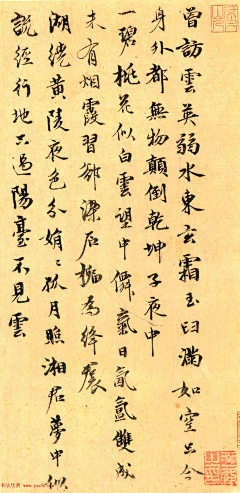 曾訪雲英弱水東玄霜玉臼滿如空只今
身外都無物顛倒乾坤子夜中
一碧桃花似白雲望中僊氣日氤氳雙成
未有烟霞習部深石榴為絳裙
湖繞黃陵夜色分娟娟孤月照湘君夢中似
說經行地只過陽臺不見雲